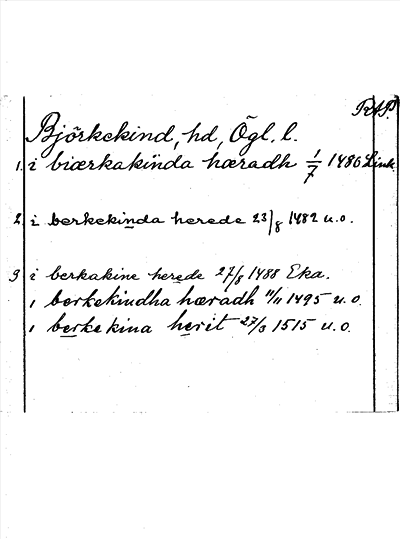 RAP.
Björkekind, hd, Ögl. l.
1. i biærkakinda hæradh 1/7 1480 Link.
2. i berkekinda herede 23/8 1482 u.o.
3 i berkakine herede 27/8 1488 Eka.
i berkekindha hæradh 11/11 1495 u.o.
i berkekina herit 27/3 1515 u.o.